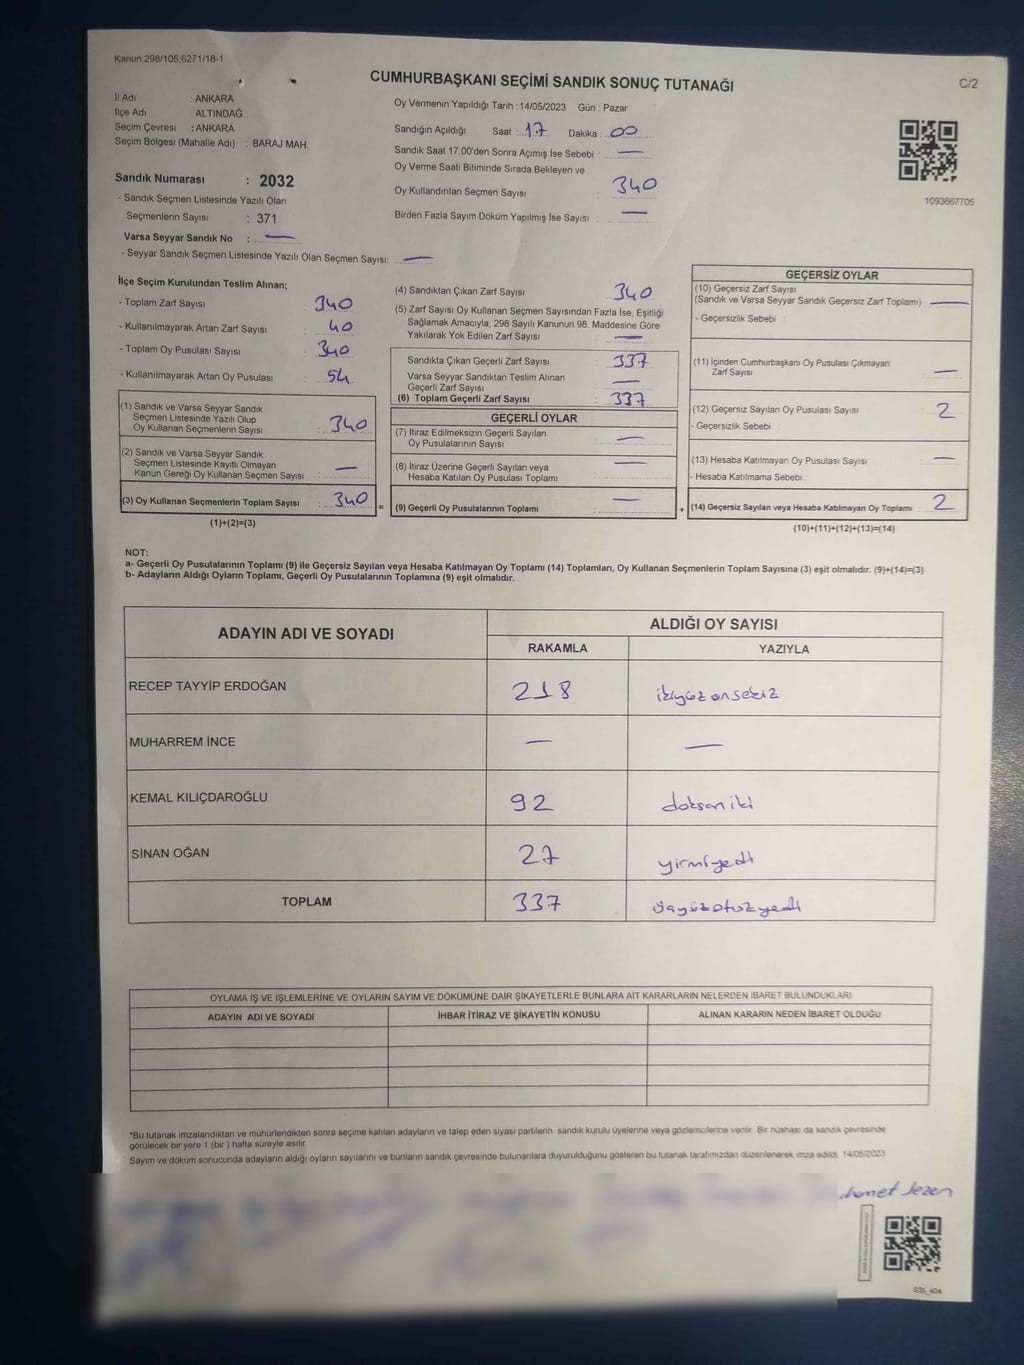 Kanun:298/105,6271/18-1
CUMHURBAŞKANI SEÇİMİ SANDIK SONUÇ TUTANAĞI
C/2
İl Adı : ANKARA
İlçe Adı : ALTINDAĞ
Seçim Çevresi : ANKARA
Seçim Bölgesi (Mahalle Adı) : BARAJ MAH.
Sandık Numarası : 2032
- Sandık Seçmen Listesinde Yazılı Olan
Seçmenlerin Sayısı : 371
Varsa Seyyar Sandık No : —
- Seyyar Sandık Seçmen Listesinde Yazılı Olan Seçmen Sayısı: —
Oy Vermenin Yapıldığı Tarih : 14/05/2023 Gün : Pazar
Sandığın Açıldığı Saat : 17 Dakika : 00
Sandık Saat 17.00'den Sonra Açımış İse Sebebi : —
Oy Verme Saati Bitiminde Sırada Bekleyen ve
Oy Kullandırılan Seçmen Sayısı : 340
Birden Fazla Sayım Döküm Yapılmış İse Sayısı : —
1093667705
İlçe Seçim Kurulundan Teslim Alınan;
- Toplam Zarf Sayısı : 340
- Kullanılmayarak Artan Zarf Sayısı : 40
- Toplam Oy Pusulası Sayısı : 340
- Kullanılmayarak Artan Oy Pusulası : 54
(1) Sandık ve Varsa Seyyar Sandık
Seçmen Listesinde Yazılı Olup
Oy Kullanan Seçmenlerin Sayısı : 340
(2) Sandık ve Varsa Seyyar Sandık
Seçmen Listesinde Kayıtlı Olmayan
Kanun Gereği Oy Kullanan Seçmen Sayısı : —
(3) Oy Kullanan Seçmenlerin Toplam Sayısı : 340
(1)+(2)=(3)
(4) Sandıktan Çıkan Zarf Sayısı : 340
(5) Zarf Sayısı Oy Kullanan Seçmen Sayısından Fazla İse, Eşitliği
Sağlamak Amacıyla; 298 Sayılı Kanunun 98. Maddesine Göre
Yakılarak Yok Edilen Zarf Sayısı : —
Sandıkta Çıkan Geçerli Zarf Sayısı : 337
Varsa Seyyar Sandıktan Teslim Alınan
Geçerli Zarf Sayısı : —
(6) Toplam Geçerli Zarf Sayısı : 337
GEÇERLİ OYLAR
(7) İtiraz Edilmeksizin Geçerli Sayılan
Oy Pusulalarının Sayısı : —
(8) İtiraz Üzerine Geçerli Sayılan veya
Hesaba Katılan Oy Pusulası Toplamı : —
= (9) Geçerli Oy Pusulalarının Toplamı : —
GEÇERSİZ OYLAR
(10) Geçersiz Zarf Sayısı
(Sandık ve Varsa Seyyar Sandık Geçersiz Zarf Toplamı) : —
- Geçersizlik Sebebi :
(11) İçinden Cumhurbaşkanı Oy Pusulası Çıkmayan
Zarf Sayısı : —
(12) Geçersiz Sayılan Oy Pusulası Sayısı : 2
- Geçersizlik Sebebi :
(13) Hesaba Katılmayan Oy Pusulası Sayısı : —
- Hesaba Katılmama Sebebi :
+ (14) Geçersiz Sayılan veya Hesaba Katılmayan Oy Toplamı : 2
(10)+(11)+(12)+(13)=(14)
NOT:
a- Geçerli Oy Pusulalarının Toplamı (9) ile Geçersiz Sayılan veya Hesaba Katılmayan Oy Toplamı (14) Toplamları, Oy Kullanan Seçmenlerin Toplam Sayısına (3) eşit olmalıdır. (9)+(14)=(3)
b- Adayların Aldığı Oyların Toplamı, Geçerli Oy Pusulalarının Toplamına (9) eşit olmalıdır.
ADAYIN ADI VE SOYADI
ALDIĞI OY SAYISI
RAKAMLA YAZIYLA
RECEP TAYYİP ERDOĞAN 218 ikiyüzonsekiz
MUHARREM İNCE — —
KEMAL KILIÇDAROĞLU 92 doksaniki
SİNAN OĞAN 27 yirmiyedi
TOPLAM 337 üçyüzotuzyedi
OYLAMA İŞ VE İŞLEMLERİNE VE OYLARIN SAYIM VE DÖKÜMÜNE DAİR ŞİKAYETLERLE BUNLARA AİT KARARLARIN NELERDEN İBARET BULUNDUKLARI
ADAYIN ADI VE SOYADI İHBAR İTİRAZ VE ŞİKAYETİN KONUSU ALINAN KARARIN NEDEN İBARET OLDUĞU
*Bu tutanak imzalandıktan ve mühürlendikten sonra seçime katılan adayların ve talep eden siyasi partilerin sandık kurulu üyelerine veya gözlemcilerine verilir. Bir nüshası da sandık çevresinde
görülecek bir yere 1 (bir) hafta süreyle asılır.
Sayım ve döküm sonucunda adayların aldığı oyların sayılarını ve bunların sandık çevresinde bulunanlara duyurulduğunu gösteren bu tutanak tarafımızdan düzenlenerek imza edildi. 14/05/2023
SSI_404